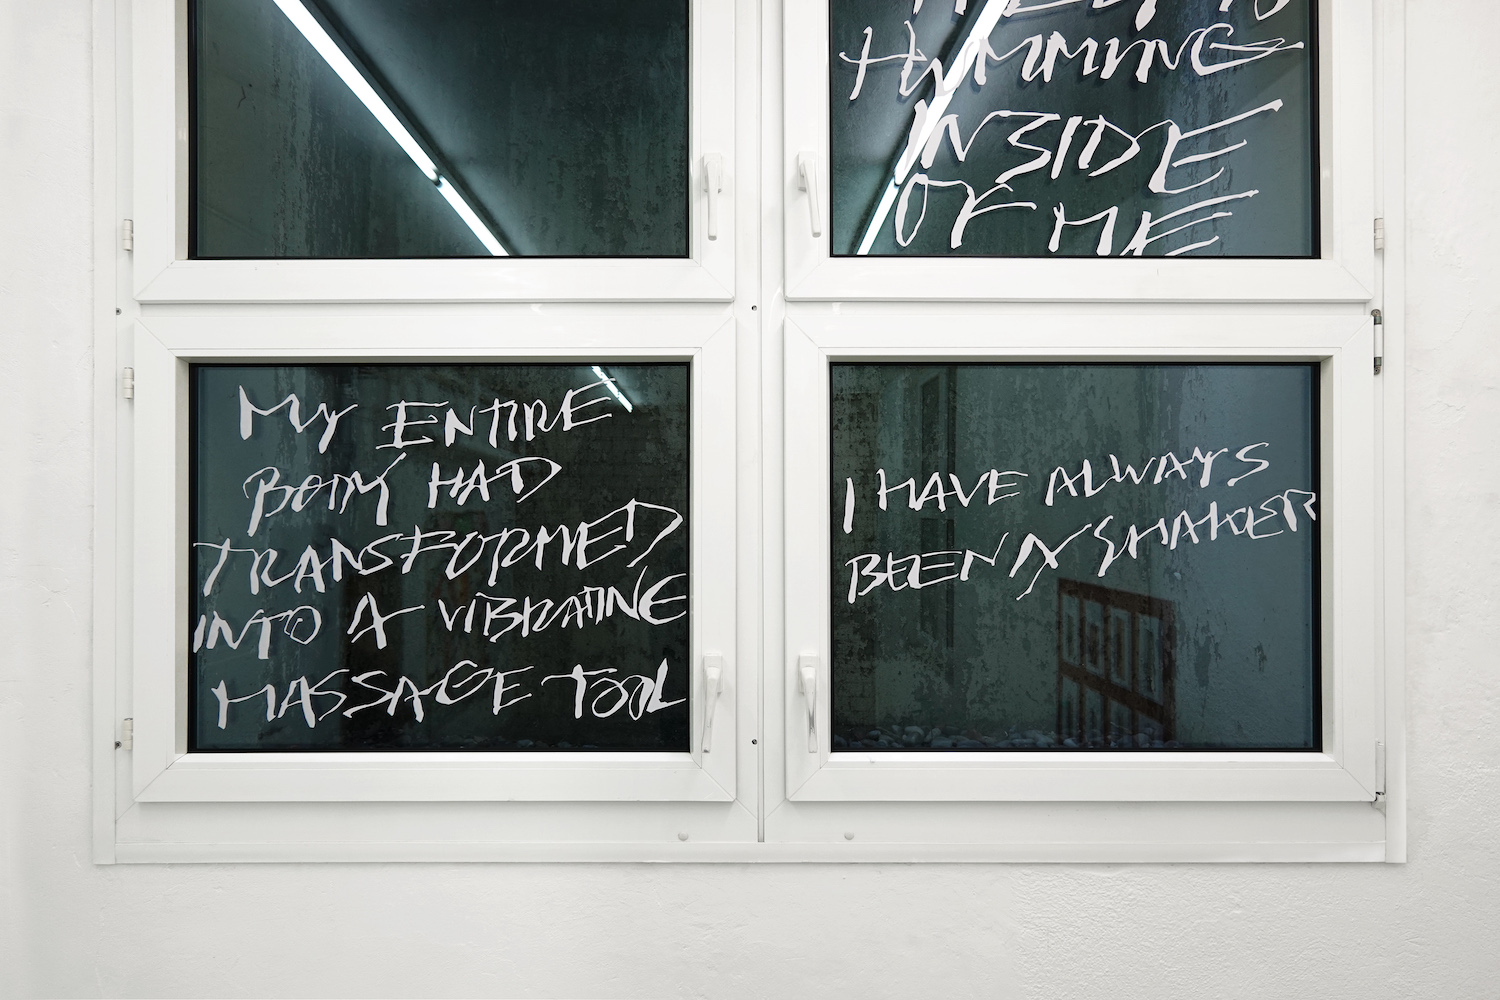 HUMMING
INSIDE
OF ME
MY ENTIRE
BODY HAD
TRANSFORMED
INTO A VIBRATINE
MASSAGE TOOL
I HAVE ALWAYS
BEEN A SHAKER